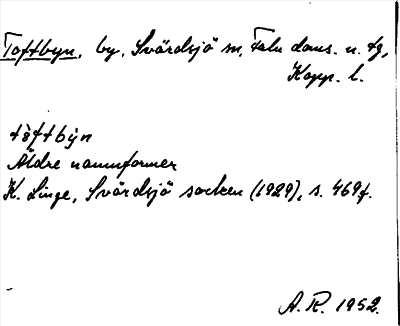 Toftbyn, by, Svärdsjö sn, Falu doms. o. tg,
Kopp. l.
tòftby̌n
Äldre namnformer
K. Linge, Svärdsjö socken (1929), s. 469f.
A. R. 1952.